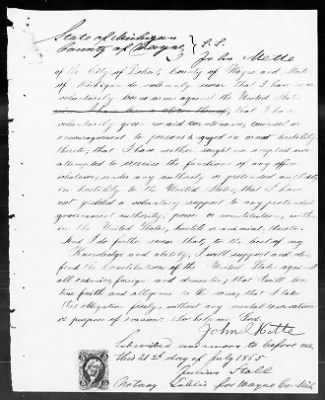 State of Michigan
County of Wayne } S.S.
John Mette
of the City of Detroit County of Wayne and State
of Michigan do solemnly swear that I have never
voluntarily borne arms against the United States
that I have
voluntarily given no aid countenance, counsel or
encouragement to persons engaged in armed hostility
thereto; that I have neither sought nor accepted nor
attempted to exercise the functions of any office
whatever, under any authority or pretended authority
in hostility to the United States; that I have
not yielded a voluntary support to any pretended
government authority, power or constitution, within
the United States, hostile or inimical thereto.
And I do further swear that, to the best of my
Knowledge and ability, I will support and de-
fend the Constitution of the United States against
all enemies, foreign and domestic; that I will bear
true faith and allegiance to the same; that I take
this obligation freely, without any mental reservation
or purpose of evasion. So help me God.
John Mette
Subscribed and sworn to before me
this 21st day of July 1865
Julius Stoll
Notary Public for Wayne Co. Mich